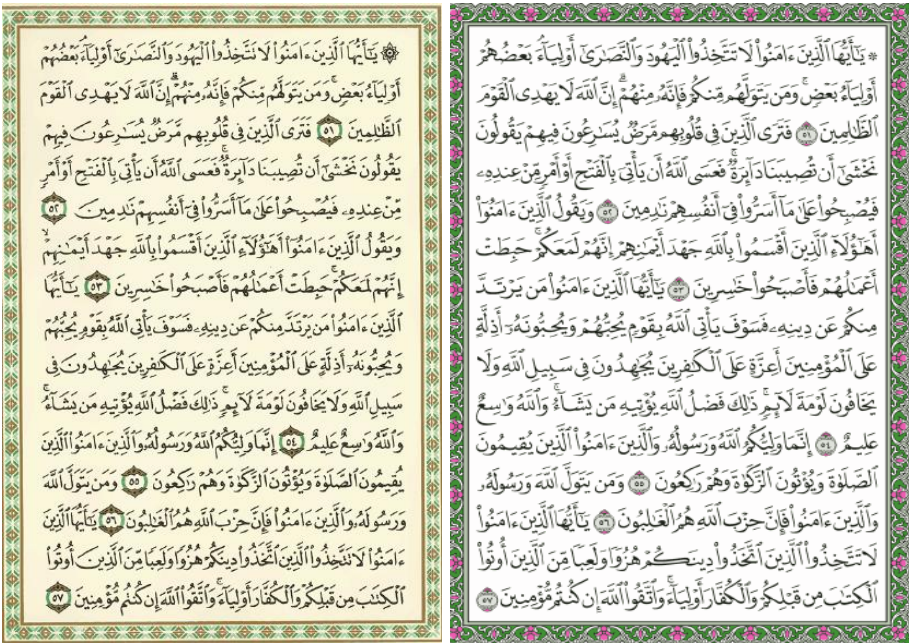 ۞ يَٰٓأَيُّهَا ٱلَّذِينَ ءَامَنُواْ لَا تَتَّخِذُواْ ٱلۡيَهُودَ وَٱلنَّصَٰرَىٰٓ أَوۡلِيَآءَۘ بَعۡضُهُمۡ
أَوۡلِيَآءُ بَعۡضٖۚ وَمَن يَتَوَلَّهُم مِّنكُمۡ فَإِنَّهُۥ مِنۡهُمۡۗ إِنَّ ٱللَّهَ لَا يَهۡدِي ٱلۡقَوۡمَ
ٱلظَّٰلِمِينَ ٥١ فَتَرَى ٱلَّذِينَ فِي قُلُوبِهِم مَّرَضٞ يُسَٰرِعُونَ فِيهِمۡ يَقُولُونَ
نَخۡشَىٰٓ أَن تُصِيبَنَا دَآئِرَةٞۚ فَعَسَى ٱللَّهُ أَن يَأۡتِيَ بِٱلۡفَتۡحِ أَوۡ أَمۡرٖ مِّنۡ عِندِهِۦ
فَيُصۡبِحُواْ عَلَىٰ مَآ أَسَرُّواْ فِيٓ أَنفُسِهِمۡ نَٰدِمِينَ ٥٢ وَيَقُولُ ٱلَّذِينَ ءَامَنُوٓاْ
أَهَٰٓؤُلَآءِ ٱلَّذِينَ أَقۡسَمُواْ بِٱللَّهِ جَهۡدَ أَيۡمَٰنِهِمۡ إِنَّهُمۡ لَمَعَكُمۡۚ حَبِطَتۡ
أَعۡمَٰلُهُمۡ فَأَصۡبَحُواْ خَٰسِرِينَ ٥٣ يَٰٓأَيُّهَا ٱلَّذِينَ ءَامَنُواْ مَن يَرۡتَدَّ
مِنكُمۡ عَن دِينِهِۦ فَسَوۡفَ يَأۡتِي ٱللَّهُ بِقَوۡمٖ يُحِبُّهُمۡ وَيُحِبُّونَهُۥٓ أَذِلَّةٍ
عَلَى ٱلۡمُؤۡمِنِينَ أَعِزَّةٍ عَلَى ٱلۡكَٰفِرِينَ يُجَٰهِدُونَ فِي سَبِيلِ ٱللَّهِ وَلَا
يَخَافُونَ لَوۡمَةَ لَآئِمٖۚ ذَٰلِكَ فَضۡلُ ٱللَّهِ يُؤۡتِيهِ مَن يَشَآءُۚ وَٱللَّهُ وَٰسِعٌ
عَلِيمٌ ٥٤ إِنَّمَا وَلِيُّكُمُ ٱللَّهُ وَرَسُولُهُۥ وَٱلَّذِينَ ءَامَنُواْ ٱلَّذِينَ يُقِيمُونَ
ٱلصَّلَوٰةَ وَيُؤۡتُونَ ٱلزَّكَوٰةَ وَهُمۡ رَٰكِعُونَ ٥٥ وَمَن يَتَوَلَّ ٱللَّهَ وَرَسُولَهُۥ
وَٱلَّذِينَ ءَامَنُواْ فَإِنَّ حِزۡبَ ٱللَّهِ هُمُ ٱلۡغَٰلِبُونَ ٥٦ يَٰٓأَيُّهَا ٱلَّذِينَ ءَامَنُواْ
لَا تَتَّخِذُواْ ٱلَّذِينَ ٱتَّخَذُواْ دِينَكُمۡ هُزُوٗا وَلَعِبٗا مِّنَ ٱلَّذِينَ أُوتُواْ
ٱلۡكِتَٰبَ مِن قَبۡلِكُمۡ وَٱلۡكُفَّارَ أَوۡلِيَآءَۚ وَٱتَّقُواْ ٱللَّهَ إِن كُنتُم مُّؤۡمِنِينَ ٥٧
۞ يَٰٓأَيُّهَا ٱلَّذِينَ ءَامَنُواْ لَا تَتَّخِذُواْ ٱلۡيَهُودَ وَٱلنَّصَٰرَىٰٓ أَوۡلِيَآءَۘ بَعۡضُهُمۡ
أَوۡلِيَآءُ بَعۡضٖۚ وَمَن يَتَوَلَّهُم مِّنكُمۡ فَإِنَّهُۥ مِنۡهُمۡۗ إِنَّ ٱللَّهَ لَا يَهۡدِي ٱلۡقَوۡمَ
ٱلظَّٰلِمِينَ ٥١ فَتَرَى ٱلَّذِينَ فِي قُلُوبِهِم مَّرَضٞ يُسَٰرِعُونَ فِيهِمۡ
يَقُولُونَ نَخۡشَىٰٓ أَن تُصِيبَنَا دَآئِرَةٞۚ فَعَسَى ٱللَّهُ أَن يَأۡتِيَ بِٱلۡفَتۡحِ أَوۡ أَمۡرٖ
مِّنۡ عِندِهِۦ فَيُصۡبِحُواْ عَلَىٰ مَآ أَسَرُّواْ فِيٓ أَنفُسِهِمۡ نَٰدِمِينَ ٥٢
وَيَقُولُ ٱلَّذِينَ ءَامَنُوٓاْ أَهَٰٓؤُلَآءِ ٱلَّذِينَ أَقۡسَمُواْ بِٱللَّهِ جَهۡدَ أَيۡمَٰنِهِمۡ
إِنَّهُمۡ لَمَعَكُمۡۚ حَبِطَتۡ أَعۡمَٰلُهُمۡ فَأَصۡبَحُواْ خَٰسِرِينَ ٥٣ يَٰٓأَيُّهَا
ٱلَّذِينَ ءَامَنُواْ مَن يَرۡتَدَّ مِنكُمۡ عَن دِينِهِۦ فَسَوۡفَ يَأۡتِي ٱللَّهُ بِقَوۡمٖ يُحِبُّهُمۡ
وَيُحِبُّونَهُۥٓ أَذِلَّةٍ عَلَى ٱلۡمُؤۡمِنِينَ أَعِزَّةٍ عَلَى ٱلۡكَٰفِرِينَ يُجَٰهِدُونَ فِي
سَبِيلِ ٱللَّهِ وَلَا يَخَافُونَ لَوۡمَةَ لَآئِمٖۚ ذَٰلِكَ فَضۡلُ ٱللَّهِ يُؤۡتِيهِ مَن يَشَآءُۚ
وَٱللَّهُ وَٰسِعٌ عَلِيمٌ ٥٤ إِنَّمَا وَلِيُّكُمُ ٱللَّهُ وَرَسُولُهُۥ وَٱلَّذِينَ ءَامَنُواْ ٱلَّذِينَ
يُقِيمُونَ ٱلصَّلَوٰةَ وَيُؤۡتُونَ ٱلزَّكَوٰةَ وَهُمۡ رَٰكِعُونَ ٥٥ وَمَن يَتَوَلَّ ٱللَّهَ
وَرَسُولَهُۥ وَٱلَّذِينَ ءَامَنُواْ فَإِنَّ حِزۡبَ ٱللَّهِ هُمُ ٱلۡغَٰلِبُونَ ٥٦ يَٰٓأَيُّهَا ٱلَّذِينَ
ءَامَنُواْ لَا تَتَّخِذُواْ ٱلَّذِينَ ٱتَّخَذُواْ دِينَكُمۡ هُزُوٗا وَلَعِبٗا مِّنَ ٱلَّذِينَ أُوتُواْ
ٱلۡكِتَٰبَ مِن قَبۡلِكُمۡ وَٱلۡكُفَّارَ أَوۡلِيَآءَۚ وَٱتَّقُواْ ٱللَّهَ إِن كُنتُم مُّؤۡمِنِينَ ٥٧